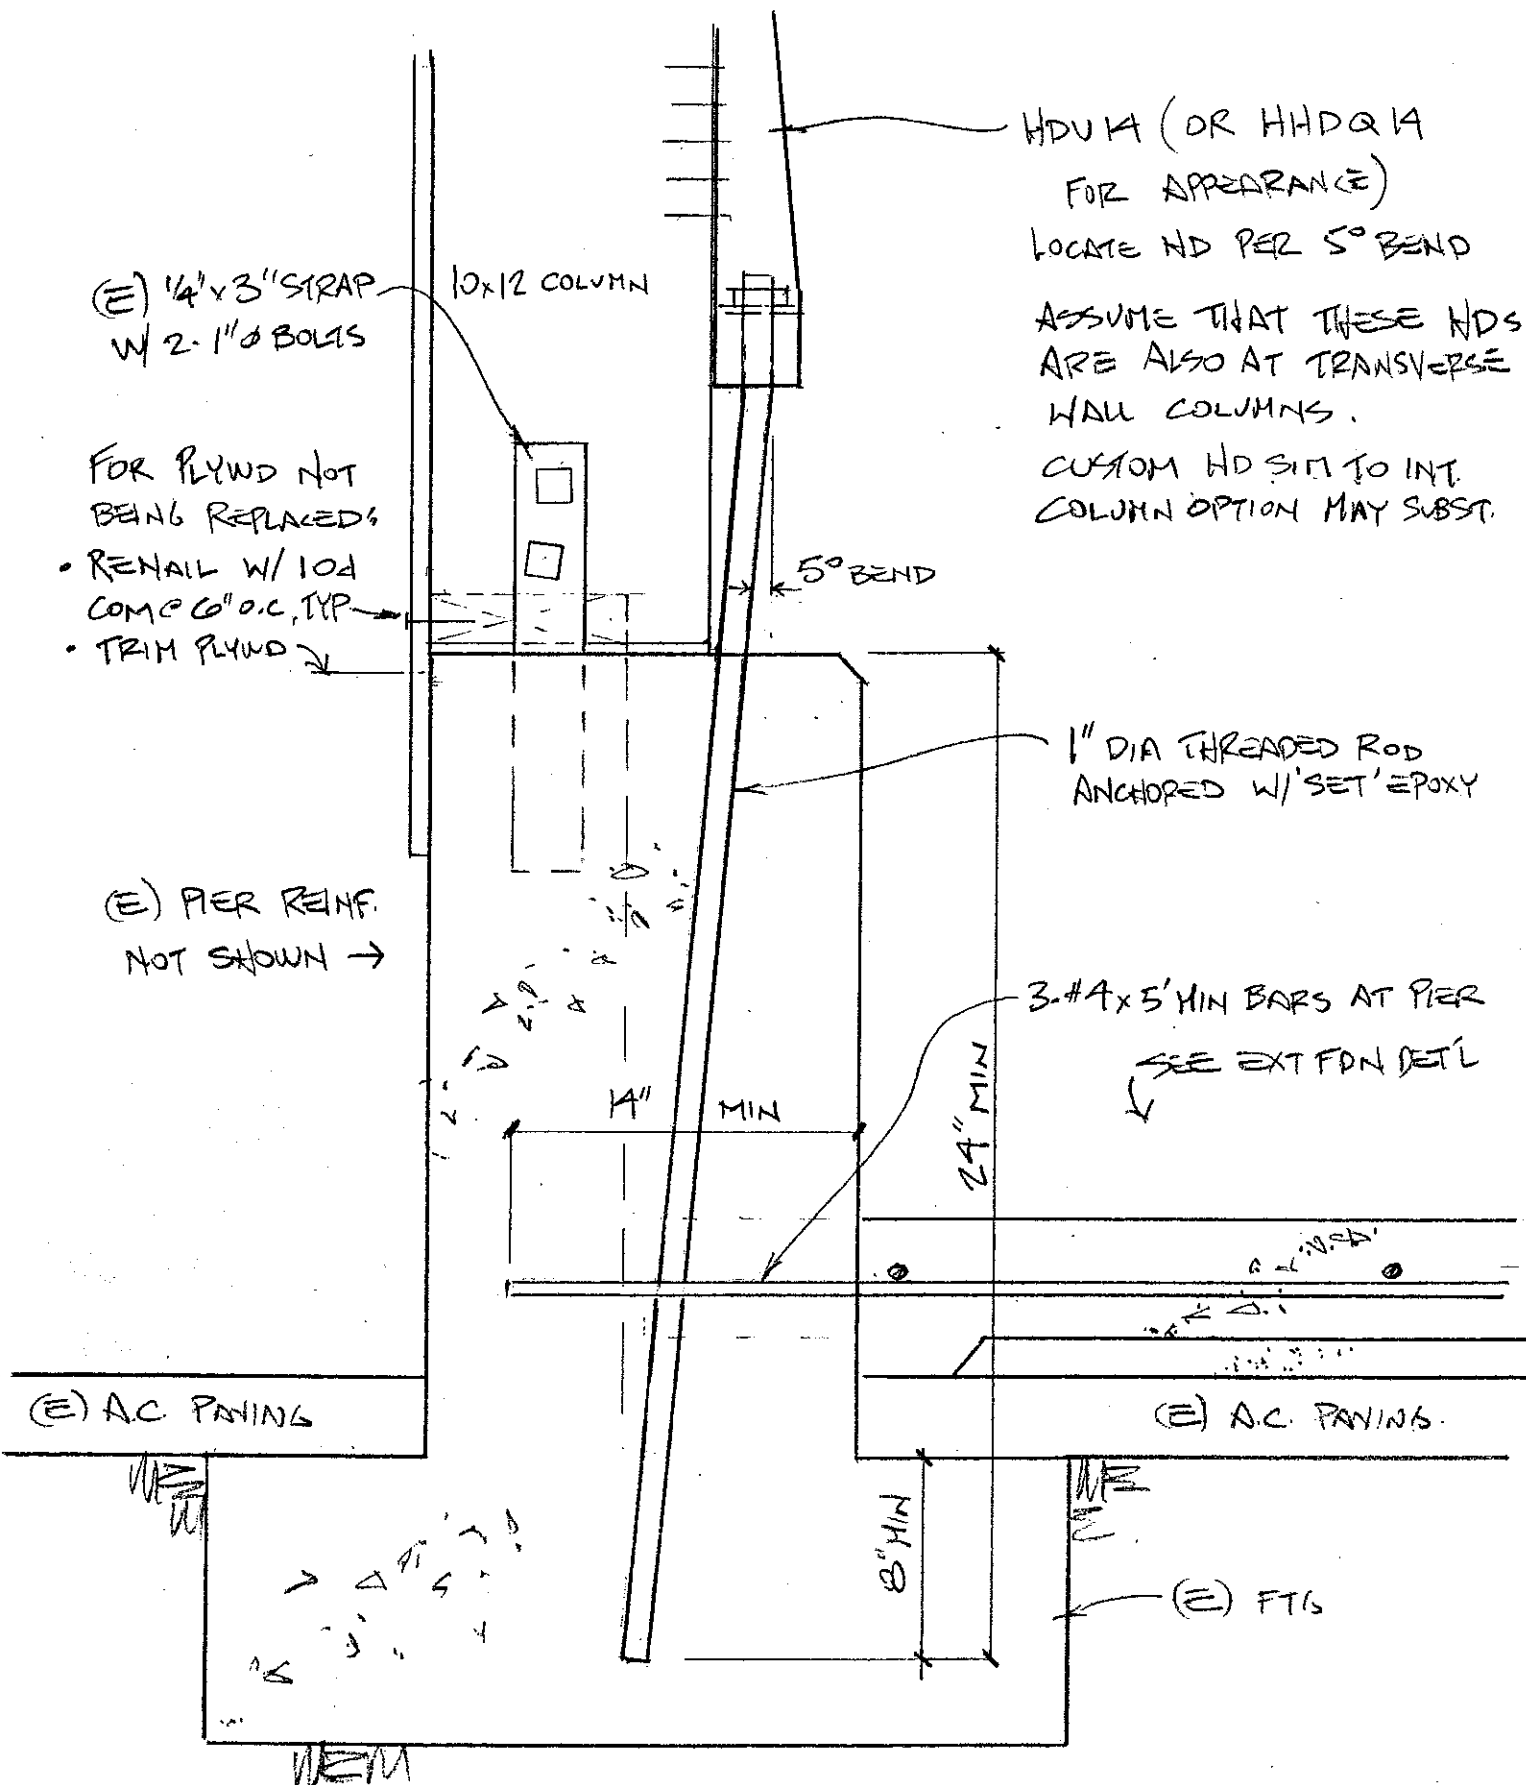 HDU14 (OR HHDQ14
FOR APPEARANCE)
LOCATE HD PER 5° BEND
ASSUME THAT THESE HDS
ARE ALSO AT TRANSVERSE
WALL COLUMNS.
CUSTOM HD SIM TO INT.
COLUMN OPTION MAY SUBST.
(E) 1/4"x3" STRAP
W/ 2-1"ø BOLTS
10x12 COLUMN
FOR PLYWD NOT
BEING REPLACED:
• RENAIL W/ 10d
COM @ 6" O.C., TYP
• TRIM PLYWD
5° BEND
1" DIA THREADED ROD
ANCHORED W/ 'SET' EPOXY
(E) PIER REINF.
NOT SHOWN →
3-#4x5' MIN BARS AT PIER
SEE EXT FDN DET'L
14" MIN
24" MIN
(E) A.C. PAVING
(E) A.C. PAVING.
8" MIN
(E) FTG